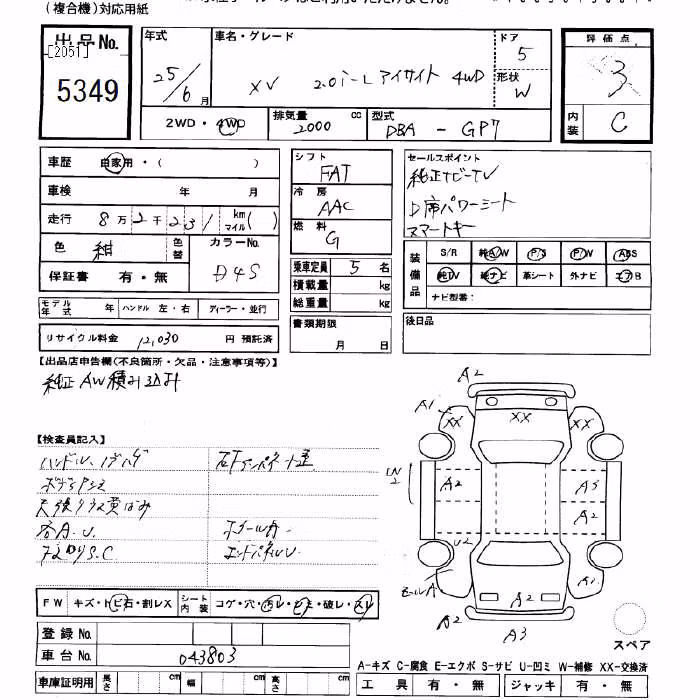 (複合機)対応用紙
出品No.
[2051]
5349
年式
25/6月
車名・グレード
XV 2.0i-L アイサイト 4WD
ドア
5
形状
W
評価点
3
内装
C
2WD・4WD
排気量
2000 cc
型式
DBA - GP7
車歴 自家用・( )
車検 年 月
走行 8万2千231 km マイル( )
色 紺 色替
カラーNo.
D4S
保証書 有・無
シフト
FAT
冷房
AAC
燃料
G
乗車定員 5 名
積載量 kg
総重量 kg
セールスポイント
純正ナビーTV
D席パワーシート
スマートキー
装備品
S/R 純A/W P/S P/W ABS
純TV 純ナビ 革シート 外ナビ エアB
ナビ型番:
モデル年式 年 ハンドル 左・右 ディーラー・並行
リサイクル料金 12,030 円 預託済
書類期限
月 日
後日品
【出品店申告欄(不良箇所・欠品・注意事項等)】
純正AW積み込み
【検査員記入】
ハンドル、
天張り
S.C
エンドパネルU
A2
A1
XX
XX
XX
A2
A3
A2
U2
A2
A1
A2
A3
FW キズ・トビ石・割レX
シート内装 コゲ・穴・汚レ・シミ・破レ・スレ
登録No.
車台No. 043803
車庫証明用 長さ cm 幅 cm 高さ cm
スペア
A-キズ C-腐食 E-エクボ S-サビ U-凹ミ W-補修 XX-交換済
工具 有・無 ジャッキ 有・無